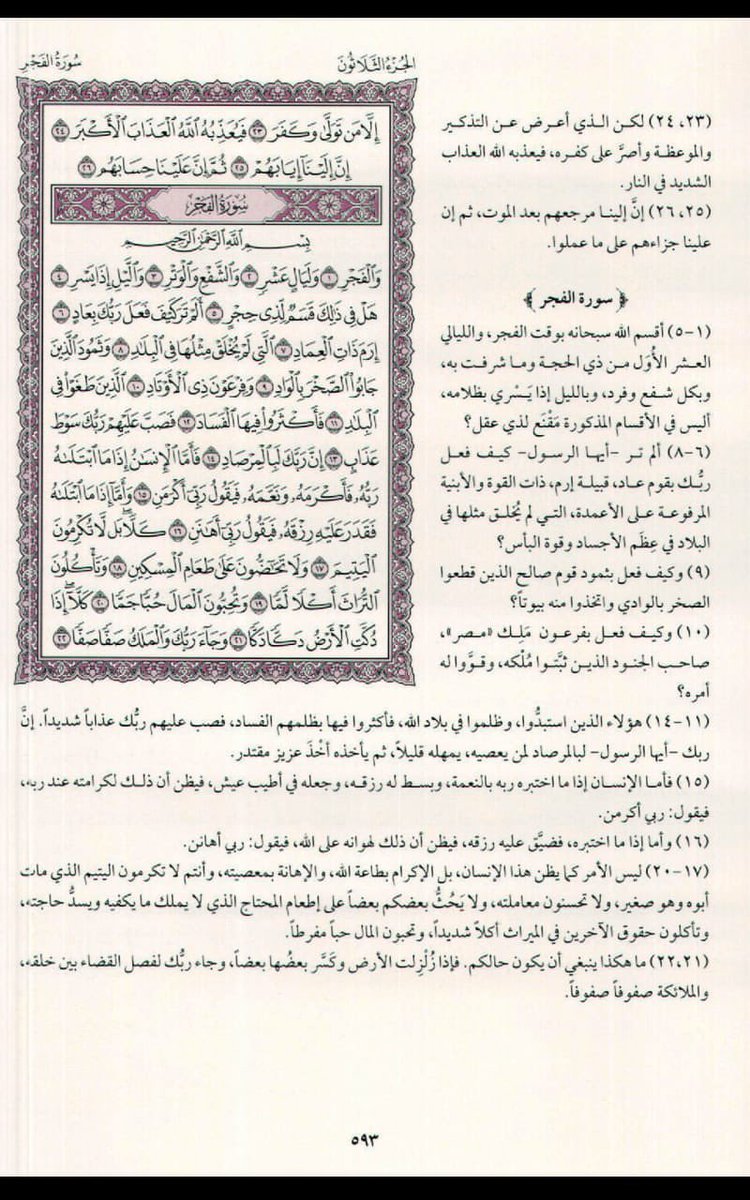 سُورَةُ الفَجْرِ
الجُزْءُ الثَّلَاثُونَ
إِلَّا مَن تَوَلَّىٰ وَكَفَرَ ٢٣ فَيُعَذِّبُهُ ٱللَّهُ ٱلْعَذَابَ ٱلْأَكْبَرَ ٢٤
إِنَّ إِلَيْنَآ إِيَابَهُمْ ٢٥ ثُمَّ إِنَّ عَلَيْنَا حِسَابَهُم ٢٦
سُورَةُ الفَجْرِ
بِسْمِ ٱللَّهِ ٱلرَّحْمَٰنِ ٱلرَّحِيمِ
وَٱلْفَجْرِ ١ وَلَيَالٍ عَشْرٍ ٢ وَٱلشَّفْعِ وَٱلْوَتْرِ ٣ وَٱلَّيْلِ إِذَا يَسْرِ ٤
هَلْ فِي ذَٰلِكَ قَسَمٌ لِّذِي حِجْرٍ ٥ أَلَمْ تَرَ كَيْفَ فَعَلَ رَبُّكَ بِعَادٍ ٦
إِرَمَ ذَاتِ ٱلْعِمَادِ ٧ ٱلَّتِي لَمْ يُخْلَقْ مِثْلُهَا فِي ٱلْبِلَٰدِ ٨ وَثَمُودَ ٱلَّذِينَ
جَابُوا۟ ٱلصَّخْرَ بِٱلْوَادِ ٩ وَفِرْعَوْنَ ذِي ٱلْأَوْتَادِ ١٠ ٱلَّذِينَ طَغَوْا۟ فِي
ٱلْبِلَٰدِ ١١ فَأَكْثَرُوا۟ فِيهَا ٱلْفَسَادَ ١٢ فَصَبَّ عَلَيْهِمْ رَبُّكَ سَوْطَ
عَذَابٍ ١٣ إِنَّ رَبَّكَ لَبِٱلْمِرْصَادِ ١٤ فَأَمَّا ٱلْإِنسَٰنُ إِذَا مَا ٱبْتَلَىٰهُ
رَبُّهُۥ فَأَكْرَمَهُۥ وَنَعَّمَهُۥ فَيَقُولُ رَبِّيٓ أَكْرَمَنِ ١٥ وَأَمَّآ إِذَا مَا ٱبْتَلَىٰهُ
فَقَدَرَ عَلَيْهِ رِزْقَهُۥ فَيَقُولُ رَبِّيٓ أَهَٰنَنِ ١٦ كَلَّا ۖ بَل لَّا تُكْرِمُونَ
ٱلْيَتِيمَ ١٧ وَلَا تَحَٰٓضُّونَ عَلَىٰ طَعَامِ ٱلْمِسْكِينِ ١٨ وَتَأْكُلُونَ
ٱلتُّرَاثَ أَكْلًا لَّمًّا ١٩ وَتُحِبُّونَ ٱلْمَالَ حُبًّا جَمًّا ٢٠ كَلَّآ ۖ إِذَا
دُكَّتِ ٱلْأَرْضُ دَكًّا دَكًّا ٢١ وَجَآءَ رَبُّكَ وَٱلْمَلَكُ صَفًّا صَفًّا ٢٢
(٢٣، ٢٤) لكن الذي أعرض عن التذكير
والموعظة وأصرَّ على كفره، فيعذبه الله العذاب
الشديد في النار.
(٢٥، ٢٦) إنَّ إلينا مرجعهم بعد الموت، ثم إن
علينا جزاءهم على ما عملوا.
﴿ سورة الفجر ﴾
(١-٥) أقسم الله سبحانه بوقت الفجر، والليالي
العشر الأُوَل من ذي الحجة وما شرفت به،
وبكل شفع وفرد، وبالليل إذا يَسْري بظلامه،
أليس في الأقسام المذكورة مَقْنَع لذي عقل؟
(٦-٨) ألم تر -أيها الرسول- كيف فعل
ربُّك بقوم عاد، قبيلة إرم، ذات القوة والأبنية
المرفوعة على الأعمدة، التي لم يُخلق مثلها في
البلاد في عِظَم الأجساد وقوة البأس؟
(٩) وكيف فعل بثمود قوم صالح الذين قطعوا
الصخر بالوادي واتخذوا منه بيوتاً؟
(١٠) وكيف فعل بفرعون مَلِك «مصر»،
صاحب الجنود الذين ثبَّتوا مُلْكه، وقوَّوا له
أمره؟
(١١-١٤) هؤلاء الذين استبدُّوا، وظلموا في بلاد الله، فأكثروا فيها بظلمهم الفساد، فصب عليهم ربُّك عذاباً شديداً. إنَّ
ربك -أيها الرسول- لبالمرصاد لمن يعصيه، يمهله قليلاً، ثم يأخذه أخْذَ عزيز مقتدر.
(١٥) فأما الإنسان إذا ما اختبره ربه بالنعمة، وبسط له رزقه، وجعله في أطيب عيش، فيظن أن ذلك لكرامته عند ربه،
فيقول: ربي أكرمن.
(١٦) وأما إذا ما اختبره، فضيَّق عليه رزقه، فيظن أن ذلك لهوانه على الله، فيقول: ربي أهانن.
(١٧-٢٠) ليس الأمر كما يظن هذا الإنسان، بل الإكرام بطاعة الله، والإهانة بمعصيته، وأنتم لا تكرمون اليتيم الذي مات
أبوه وهو صغير، ولا تحسنون معاملته، ولا يَحُثُّ بعضكم بعضاً على إطعام المحتاج الذي لا يملك ما يكفيه ويسدُّ حاجته،
وتأكلون حقوق الآخرين في الميراث أكلاً شديداً، وتحبون المال حباً مفرطاً.
(٢١، ٢٢) ما هكذا ينبغي أن يكون حالكم. فإذا زُلْزِلت الأرض وكسَّر بعضُها بعضاً، وجاء ربُّك لفصل القضاء بين خلقه،
والملائكة صفوفاً صفوفاً.
٥٩٣